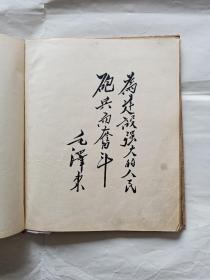 為建設强大的人民
砲兵而奮斗
毛澤東